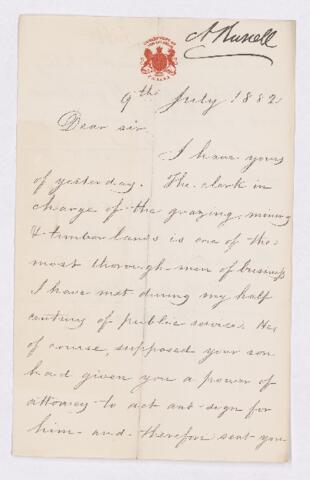 A Russell
9th July 1882
Dear sir
I have yours
of yesterday. The clerk in
charge of the grazing, mining
& timber lands is one of the
most thorough men of business
I have met during my half
century of public service. He
of course, supposed your son
had given you a power of
attorney to act and sign for
him and therefore sent you